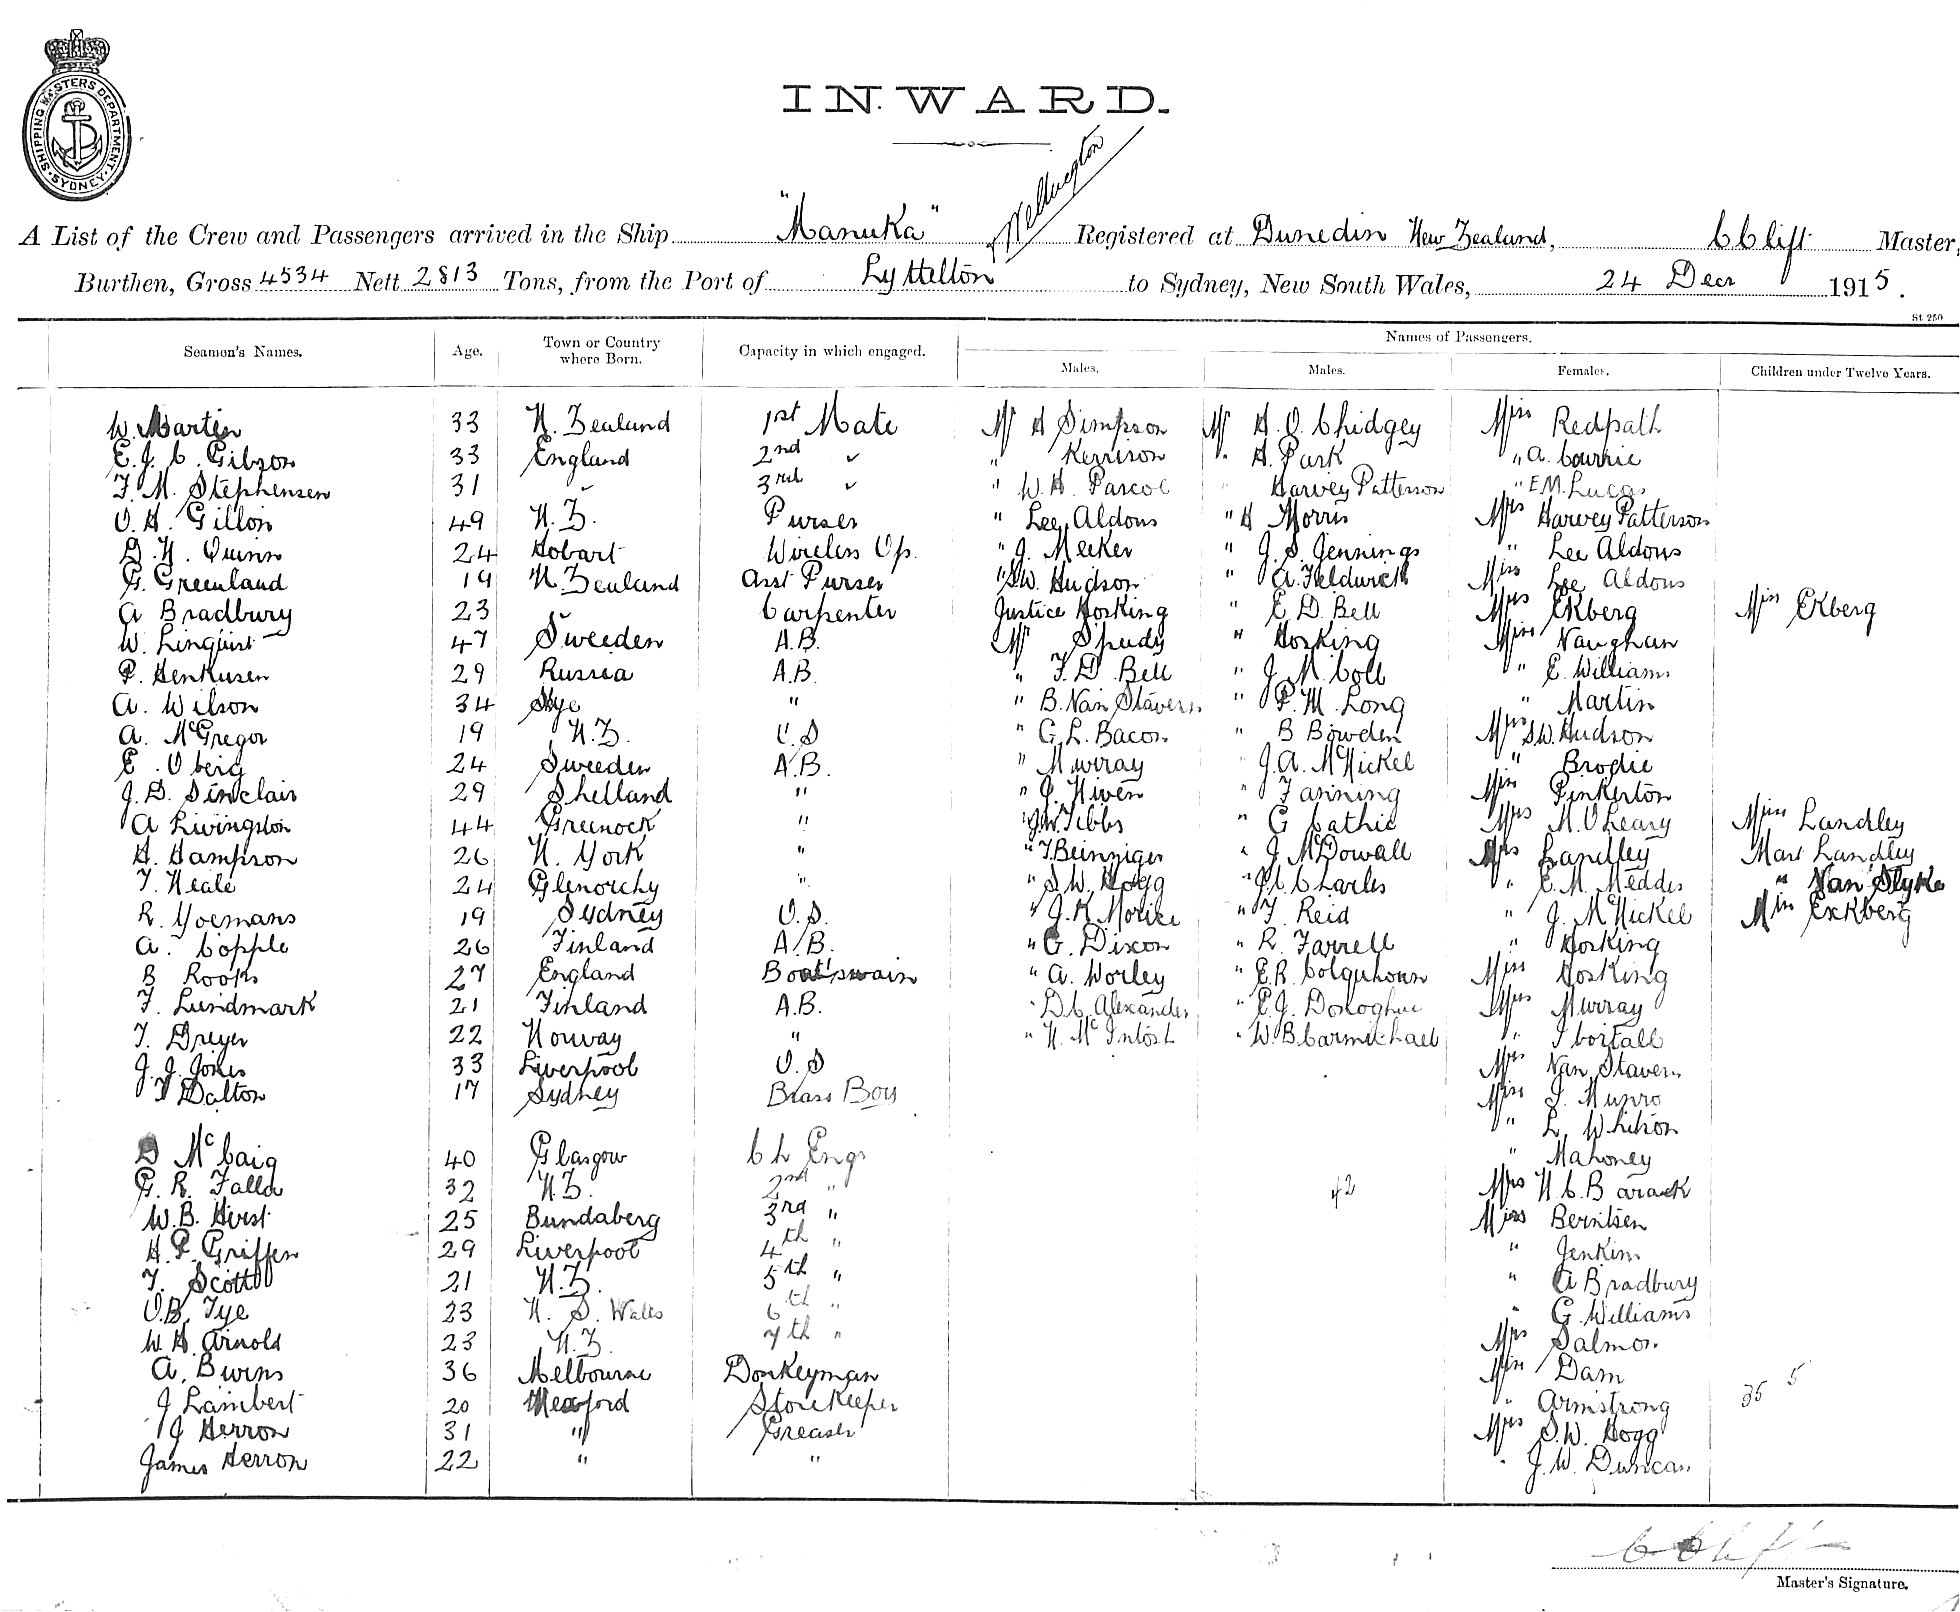 SHIPPING MASTERS DEPARTMENT. SYDNEY.
INWARD.
A List of the Crew and Passengers arrived in the Ship "Manuka" & Wellington Registered at Dunedin New Zealand, C Clift Master,
Burthen, Gross 4534 Nett 2813 Tons, from the Port of Lyttelton to Sydney, New South Wales, 24 Decr 1915.
St 250
Names of Passengers.
Seamen's Names. Age. Town or Country where Born. Capacity in which engaged. Males. Males. Females. Children under Twelve Years.
W. Martin 33 N. Zealand 1st Mate Mr H Simpson Mr H. O. Chidgey Miss Redpath
E. J. C. Gibson 33 England 2nd " " Kerrison " H. Park " A. Currie
F. M. Stephensen 31 " 3rd " " W. H. Pascoe " Harvey Patterson " E M. Lucas
O. H. Gillon 49 N. Z. Purser " Lee Aldous " H Morris Mrs Harvey Patterson
D. N. Quinn 24 Hobart Wireless Op. " J. Meeker " J. S. Jennings " Lee Aldous
G. Greenland 19 N. Zealand Asst Purser " S.W. Hudson " A. Feldwick Miss Lee Aldous
A Bradbury 23 " Carpenter Justice Hosking " E. D. Bell Mrs Ekberg Miss Ekberg
W. Linquist 47 Sweeden A.B. Mr Spudy " Hosking Miss Vaughan
P. Henkusen 29 Russia A.B. " F. D. Bell " J. M. Coll " E. Williams
A. Wilson 34 Skye " " B. Van Staveren " P. M. Long " Martin
A. McGregor 19 N. Z. O.S " G. L. Bacon " B Bowden Mrs S.W. Hudson
E. Oberg 24 Sweeden A.B. " Murray " J. A. McNickel " Brodie
J. D. Sinclair 29 Shetland " " J. Niven " Fanning Miss Pinkerton
A Livingston 44 Greenock " " J.W. Tibbs " G Cathie Mrs M. O'Leary Miss Landley
H. Hampson 26 N. York " " F. Beinziger " J. McDowall Mrs Landley Mast Landley
F. Neale 24 Glenorchy " " S. W. Hogg " J. C. Charles " E. M. Meddes " Van Slyke
R. Yoemans 19 Sydney O.S. " J. K. Morice " F. Reid " J. McNickel Miss Exkberg
A. Copple 26 Finland A.B. " G. Dixon " R. Farrell " Hosking
B Roops 27 England Boatswain " A. Worley " E.R. Colquhoun Miss Hosking
F. Lundmark 21 Finland A.B. " D. C. Alexander " P. J. Donoghue Mrs Murray
T. Dreyer 22 Norway " " N. McIntosh " W. B Carmichael "
J. J. Jones 33 Liverpool O.S Mrs Van Staveren
T Dalton 17 Sydney Brass Boy Miss J. Munro
" L. Whitson
D McCaig 40 Glasgow Ch Engr " Mahoney
G. R. Falla 32 N. Z. 2nd " 42 Mrs N C. Barack
W. B. Hirst 25 Bundaberg 3rd " Miss Berntsen
H. P. Griffen 29 Liverpool 4th " " Jenkins
T. Scott 21 N. Z. 5th " " A Bradbury
O.B. Tye 23 N. S. Wales 6th " " G. Williams
W. H. Arnold 23 N. Z. 7th " Mrs Salmon
A. Burns 36 Melbourne Donkeyman Miss Dam
J Lambert 20 Wexford Storekeeper " Armstrong 35 5
J Herron 31 " Greaser Mrs S. W. Hogg
James Herron 22 " " " J. W. Duncan
C Clift
Master's Signature.